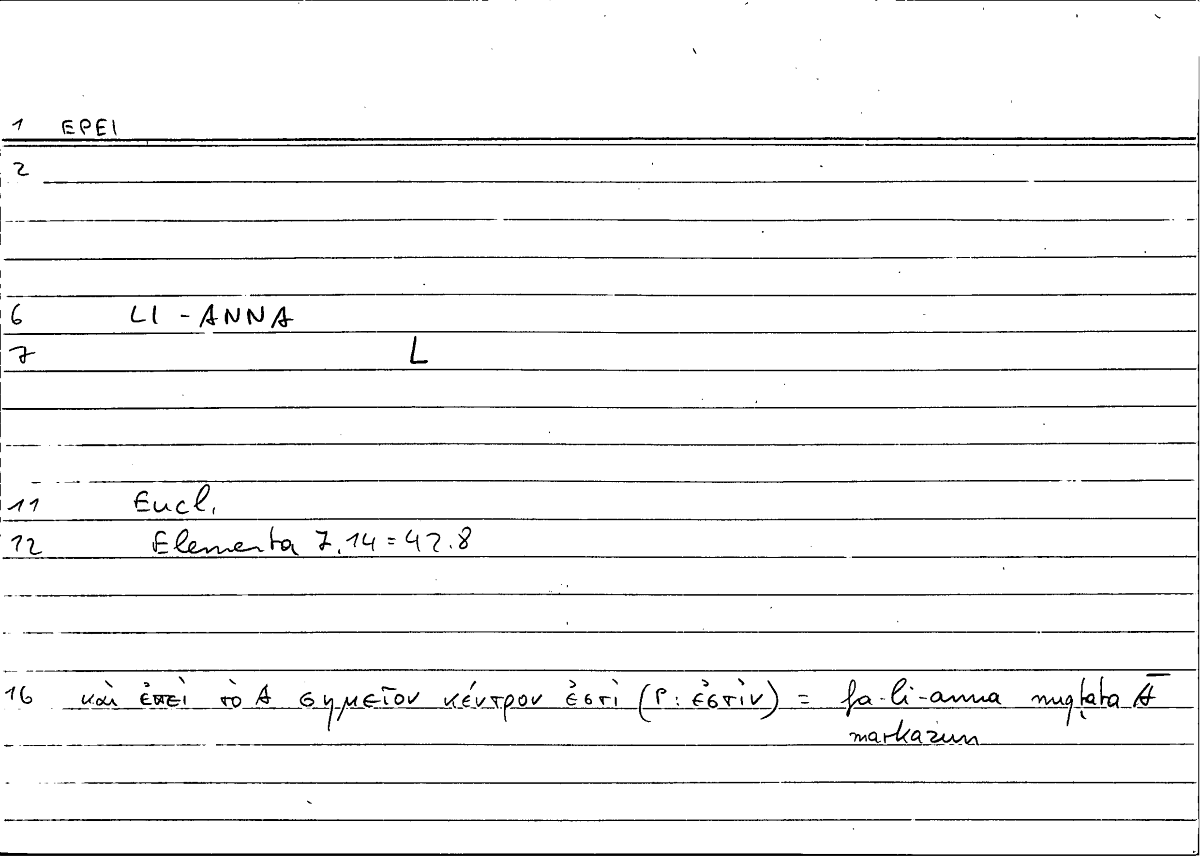 1 EPEI
2
6 LI - ANNA
7 L
11 Eucl.
12 Elementa 7.14 = 42.8
16 καὶ ἐπεὶ τὸ A σημεῖον κέντρον ἐστὶ (P: ἐστὶν) = fa-li-anna nuqṭata A̅
markazun